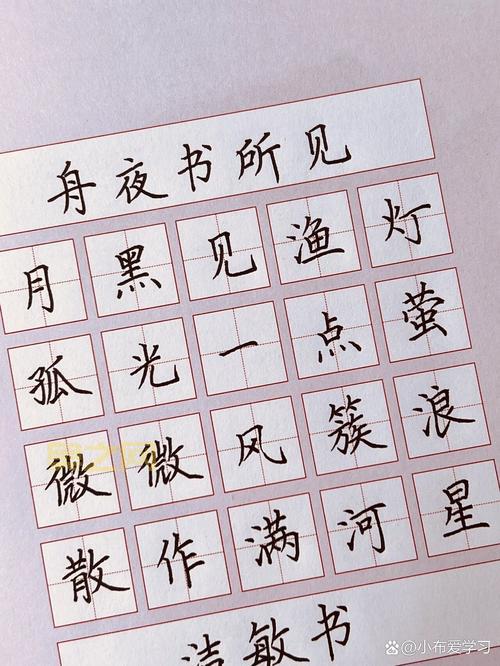 舟夜书所见
月黑见渔灯
孤光一点萤
微微风簇浪
散作满河星
洁敏书
@小布爱学习